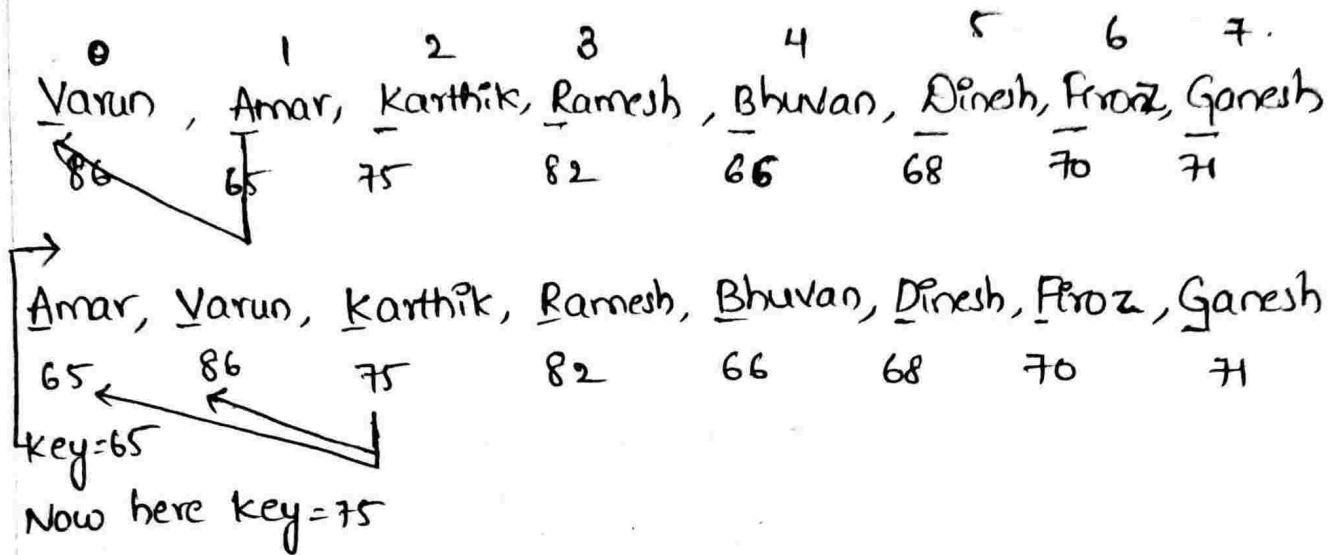 0 1 2 3 4 5 6 7.
Varun, Amar, Karthik, Ramesh, Bhuvan, Dinesh, Firoz, Ganesh
86 65 75 82 66 68 70 71
Amar, Varun, Karthik, Ramesh, Bhuvan, Dinesh, Firoz, Ganesh
65 86 75 82 66 68 70 71
key=65
Now here key=75